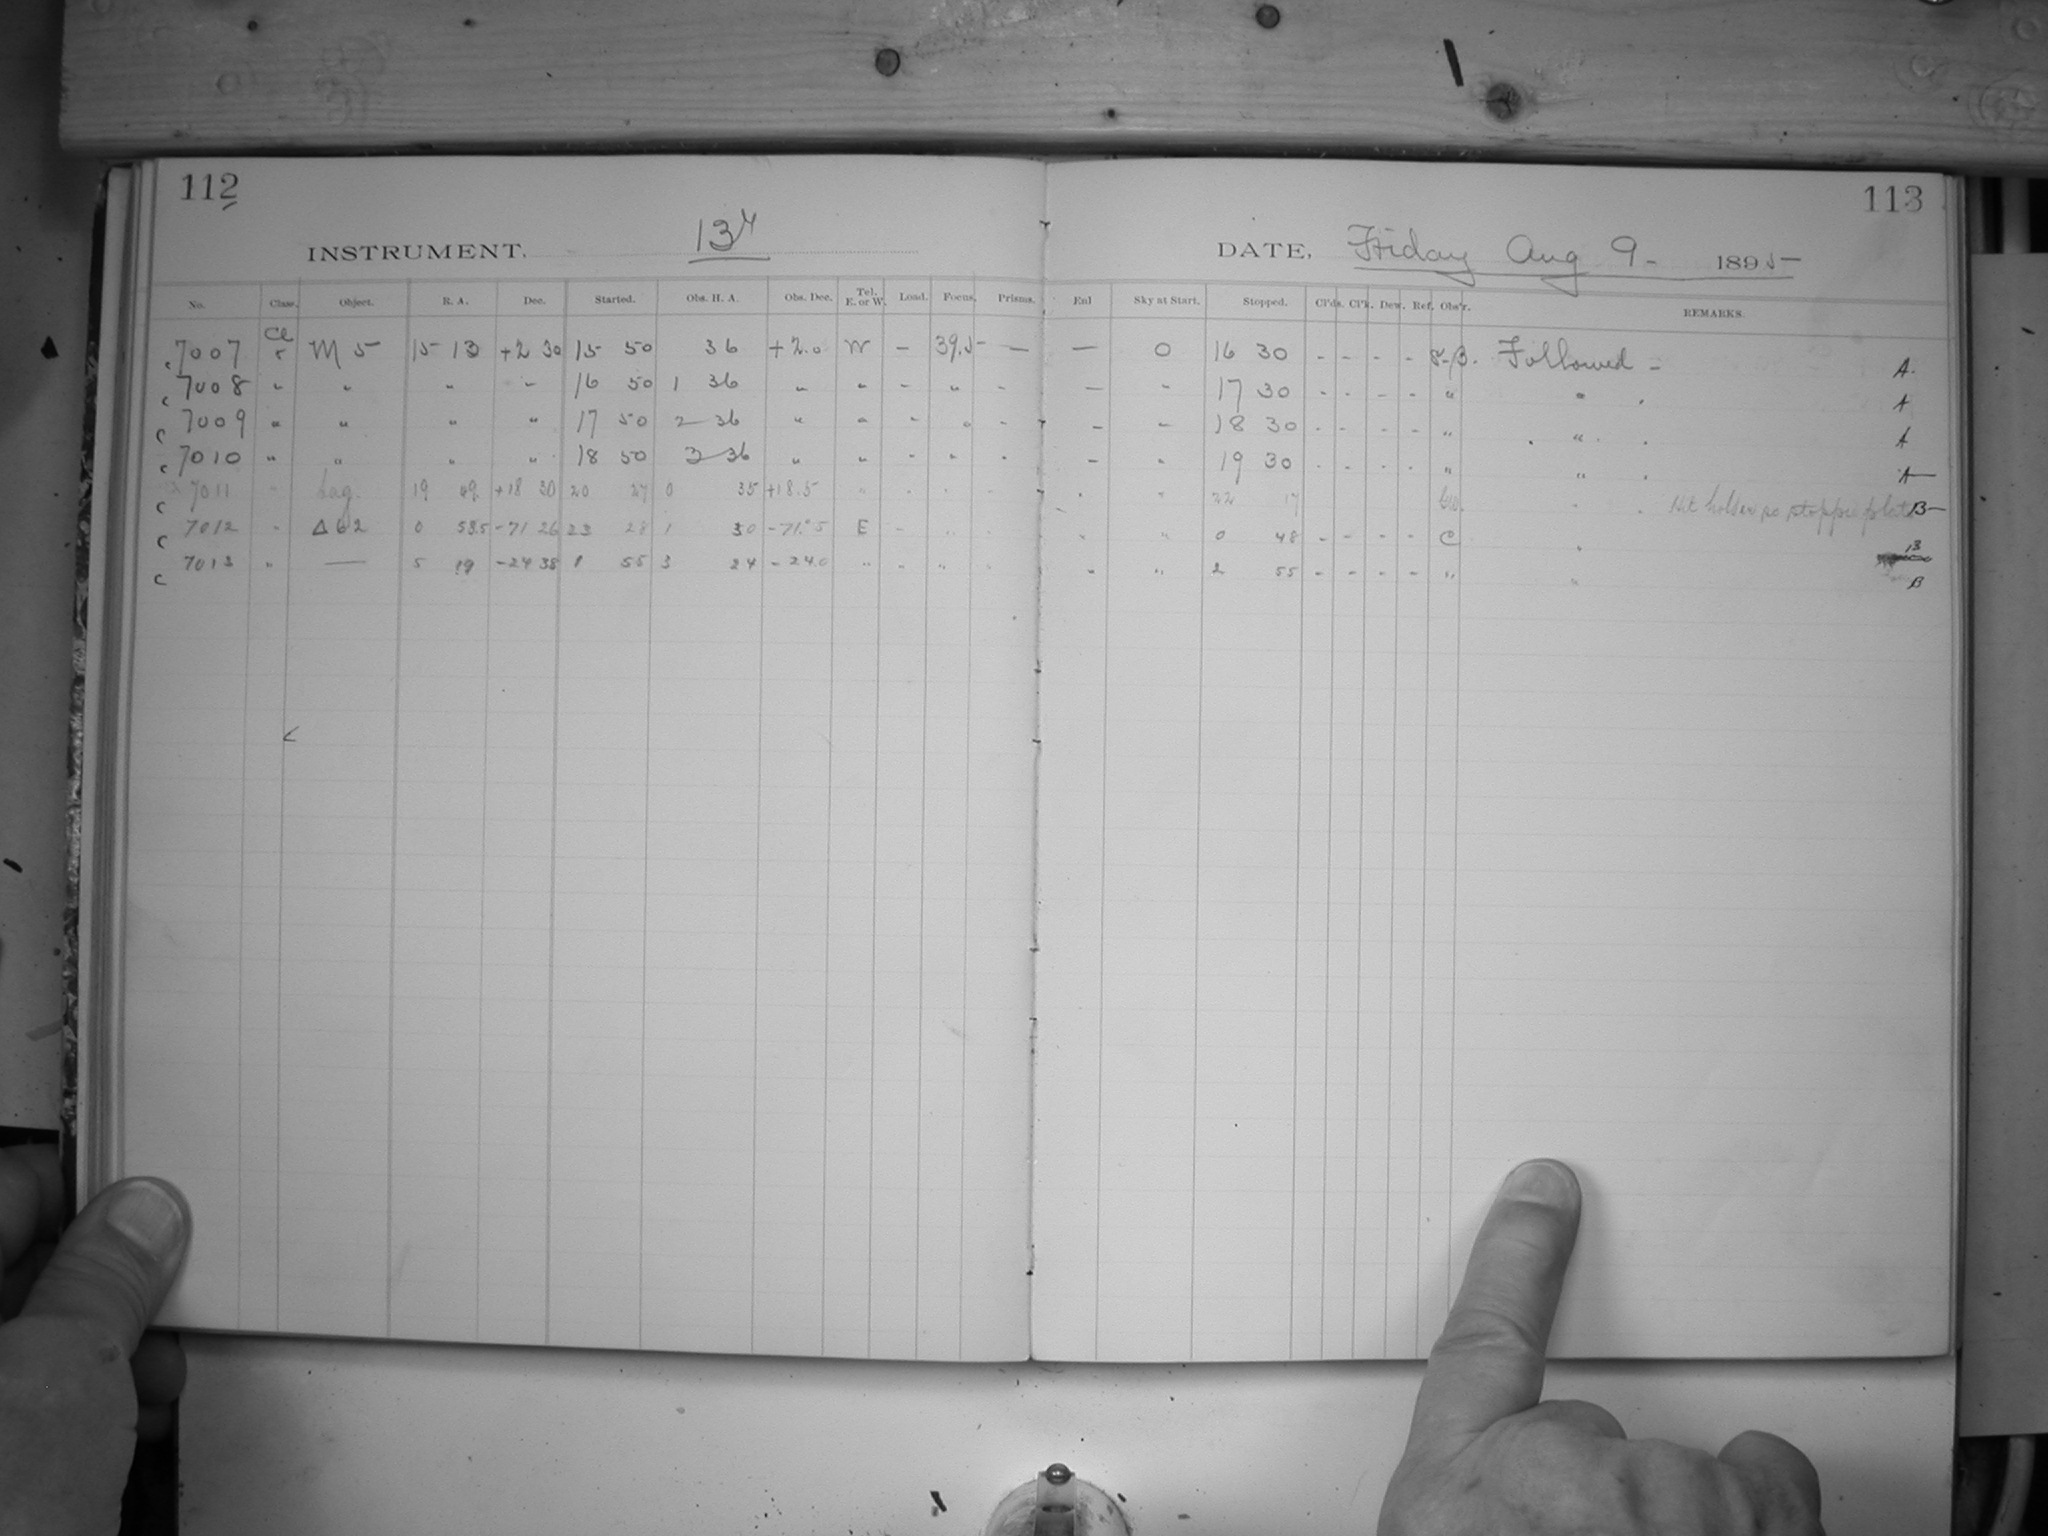 112 113
INSTRUMENT, 13" DATE, Friday Aug 9- 1895
No. Class. Object. R. A. Dec. Started. Obs. H. A. Obs. Dec. Tel. E. or W. Load. Focus. Prisms. Enl Sky at Start. Stopped. Cl'ds. Cl'k. Dew. Ref. Obs'r. REMARKS.
7007 Cl M 5 15 13 +2 30 15 50 36 +2.0 W - 39.5 - - 0 16 30 - - - - Followed - A.
7008 " " " " 16 50 1 36 " " - " - - " 17 30 - - - - " " A
7009 " " " " 17 50 2 36 " " - " - - " 18 30 - - - - " " A
7010 " " " " 18 50 3 36 " " - " - - " 19 30 - - - - " " A
7011 " 19 49 +18 30 20 27 0 35 +18.5 " " 22 17 " B
7012 " Δ 62 0 53.5 -71 26 23 28 1 30 -71.5 E - " " 0 48 - - - - C " B
7013 " — 5 19 -24 38 1 55 3 24 -24.0 " - " " 2 55 - - - - " " B